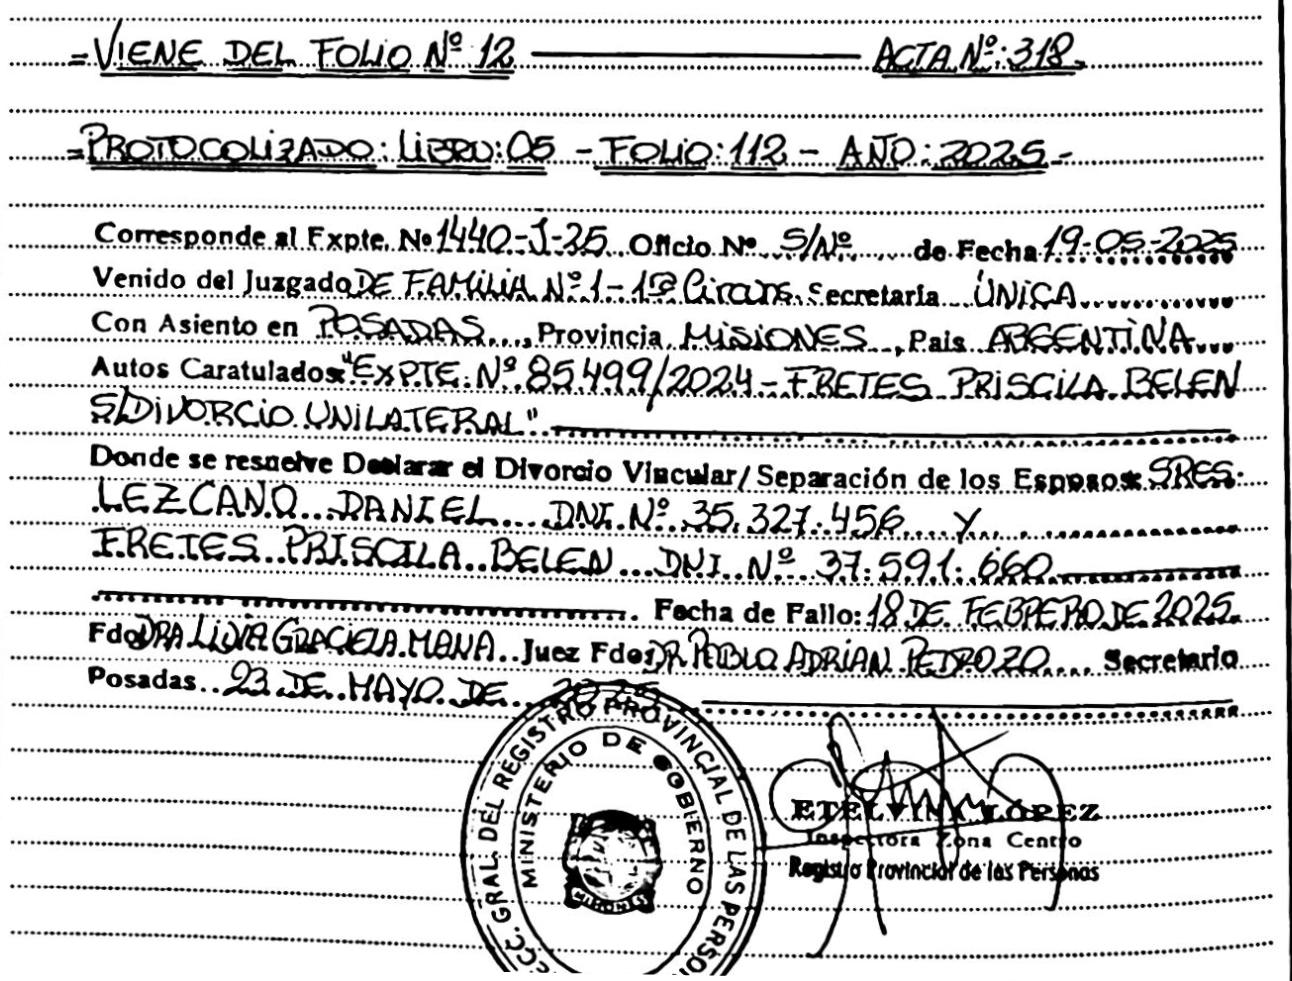 =VIENE DEL FOLIO Nº 12 ACTA Nº: 318.
=PROTOCOLIZADO: LIBRO: 05 - FOLIO: 112 - AÑO: 2025-
Corresponde al Expte. Nº 1440-J-25 Oficio Nº S/Nº de Fecha 19-05-2025
Venido del Juzgado DE FAMILIA Nº 1 - 1ra Circuns. Secretaría ÚNICA
Con Asiento en POSADAS, Provincia MISIONES, País ARGENTINA
Autos Caratulados: "EXPTE. Nº 85.499/2024 - FRETES PRISCILA BELEN
S/DIVORCIO UNILATERAL".
Donde se resuelve Declarar el Divorcio Vincular/Separación de los Esposos: SRES.
LEZCANO DANIEL DNI Nº 35.327.456 Y
FRETES PRISCILA BELEN DNI Nº 37.591.660
Fecha de Fallo: 18 DE FEBRERO DE 2025.
Fdo: DRA LIDIA GRACIELA Juez Fdo: DR PABLO ADRIAN PEDROZO Secretario
Posadas 23 DE MAYO DE 2025
GRAL. DEL REGISTRO PROVINCIAL DE LAS
MINISTERIO DE GOBIERNO
MISIONES
ETELVINA LÓPEZ
Inspectora Zona Centro
Registro Provincial de las Personas